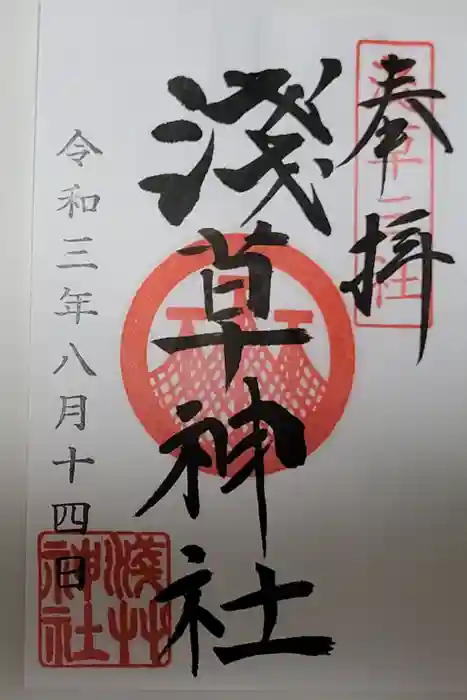 奉拝
浅草三社
淺草神社
令和三年八月十四日
淺草神社